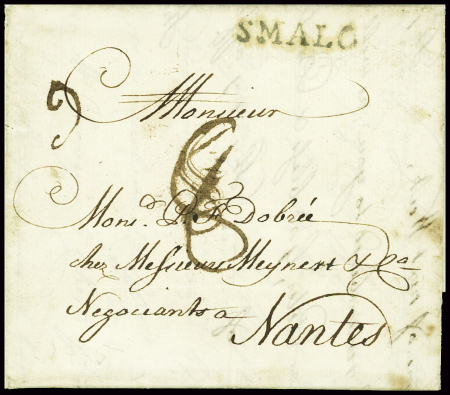 SMALO
Monsieur
8
Mons.r P. F. Dobrée
chez Messieurs Meynert & Ca
Negociants a
Nantes